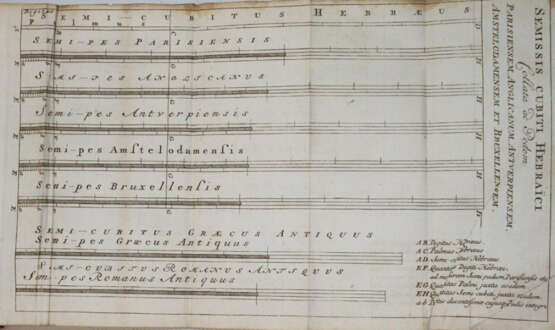 SEMI-CUBITUS HEBRÆUS
SEMI-PES PARISIENSIS
SEMI-PES ANGLICANUS
Semi-pes Antverpiensis
Semi-pes Amstelodamensis
Semi-pes Bruxellensis
SEMI-CUBITUS GRÆCUS ANTIQUUS
Semi-pes Græcus Antiquus
SEMI-CUBITUS ROMANUS ANTIQUUS
Semi-pes Romanus Antiquus
SEMISSIS CUBITI HEBRAÏCI
Collata ad Pedem
PARISIENSEM, ANGLICANUM, ANTVERPIENSEM,
AMSTELODAMENSEM ET BRUXELLENSEM.
AB. Digitus Hebræus
AC. Palmus Hebræus
AD. Semi Hebræus
EF. Quantitas Digiti Hebræi,
ad Semipedem Parisiensem
EG. Quantitas Palmi juxta eosdem
EH. Quantitas Semi cubiti juxta eosdem